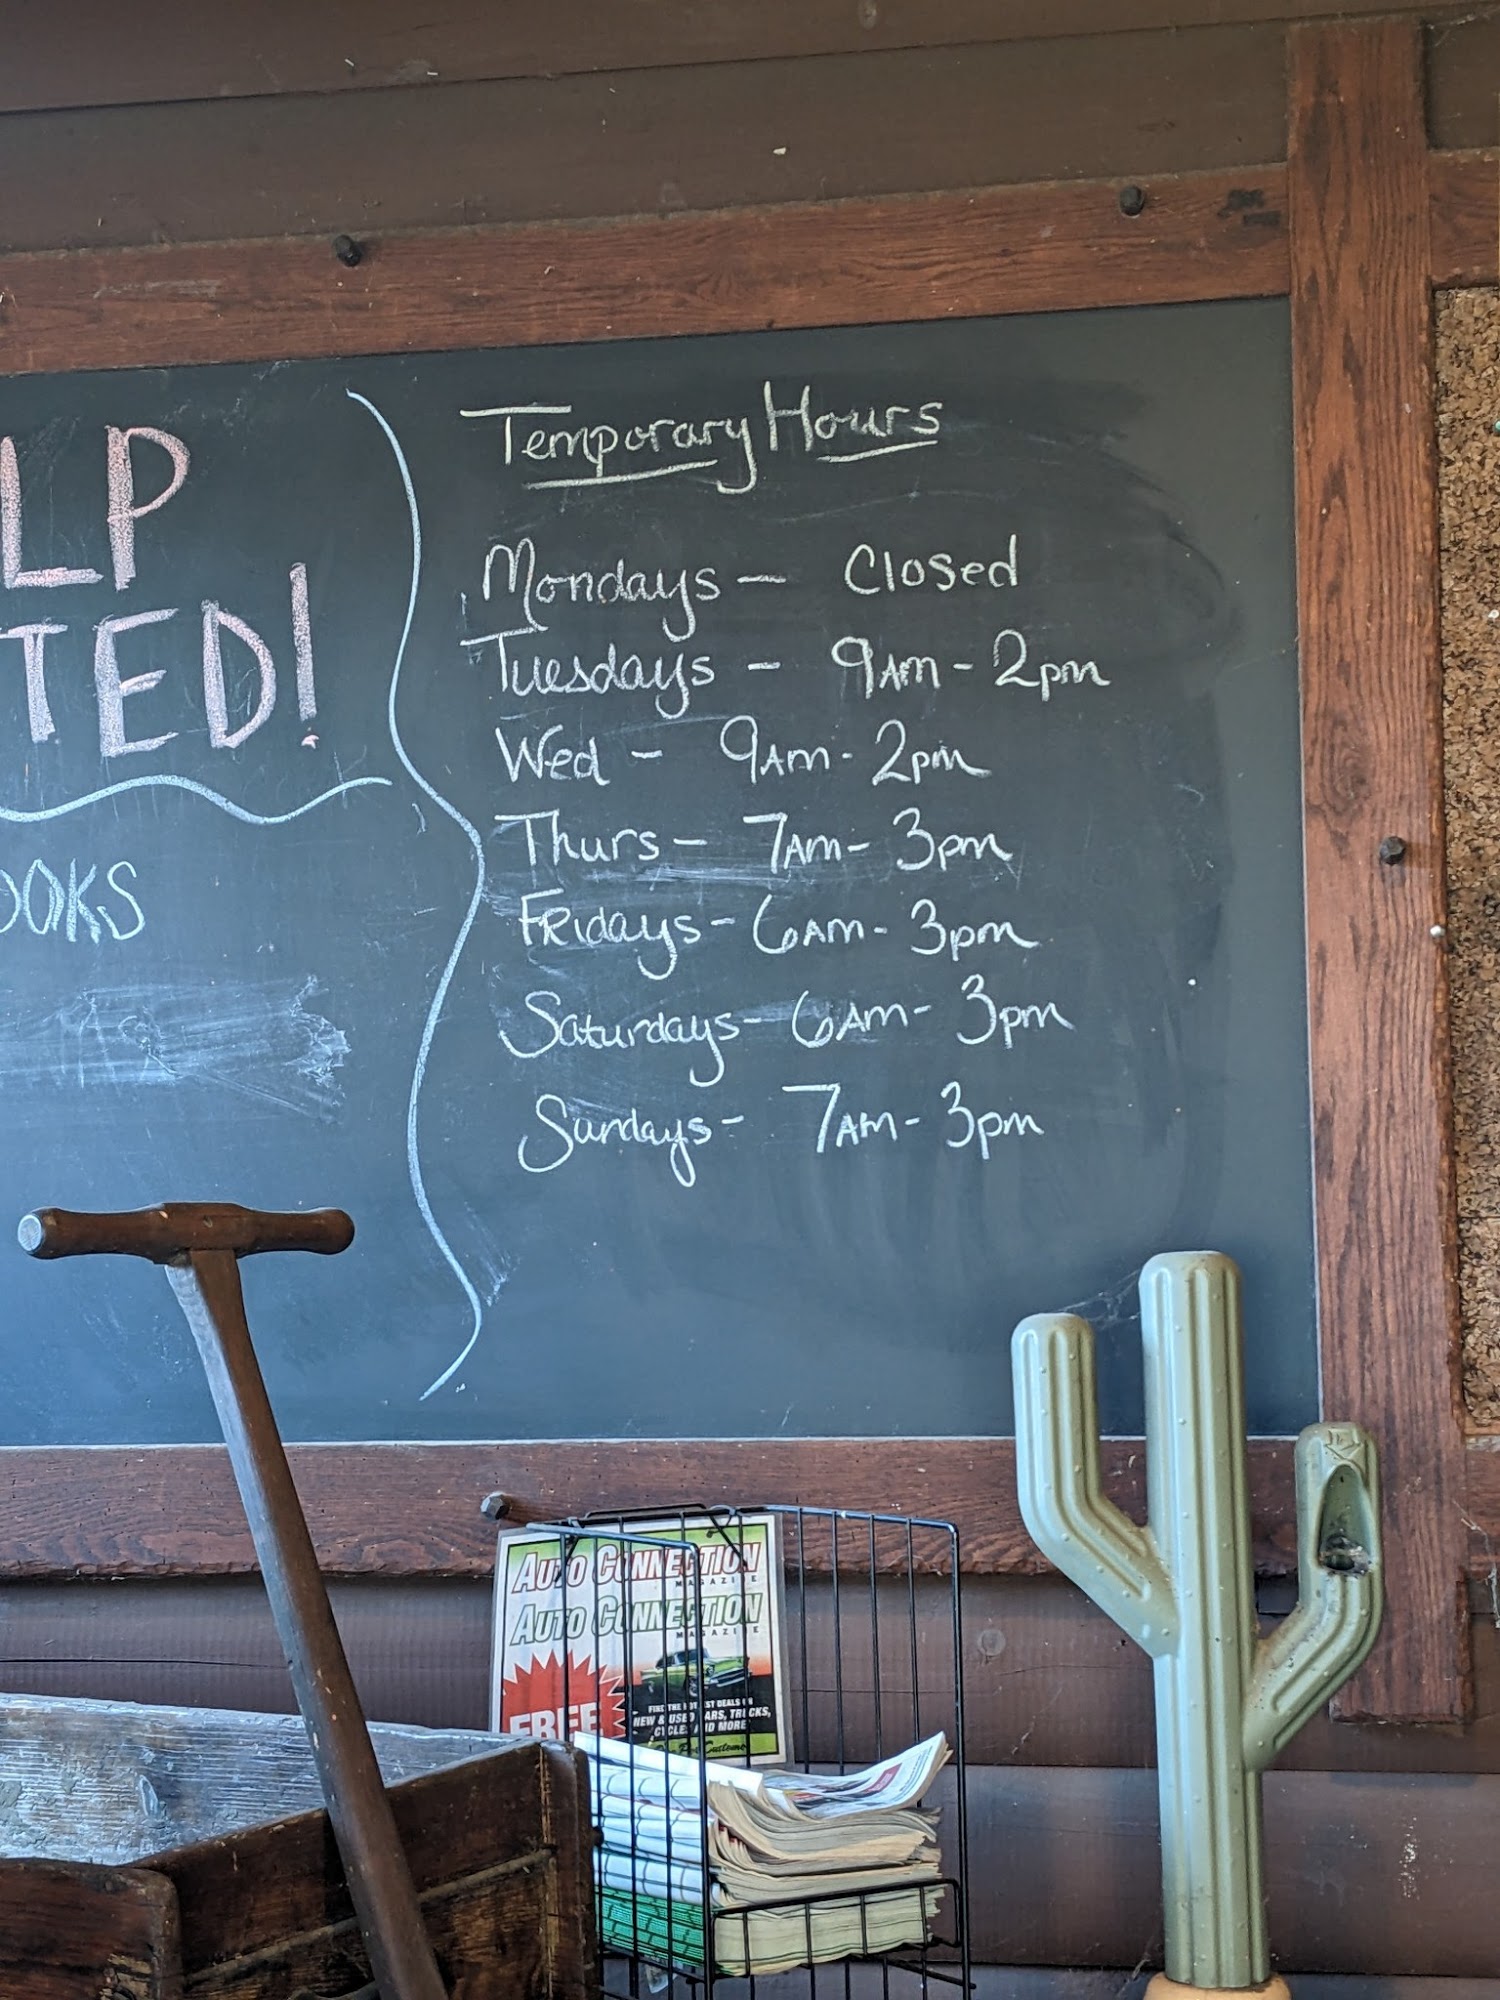 LP
TED!
OOKS
Temporary Hours
Mondays - Closed
Tuesdays - 9AM - 2pm
Wed - 9AM - 2pm
Thurs - 7AM - 3pm
FRidays - 6AM - 3pm
Saturdays - 6AM - 3pm
Sundays - 7AM - 3pm
AUTO CONNECTION
MAGAZINE
AUTO CONNECTION
MAGAZINE
FREE
NEW & USED CARS, TRUCKS,
CYCLES AND MORE